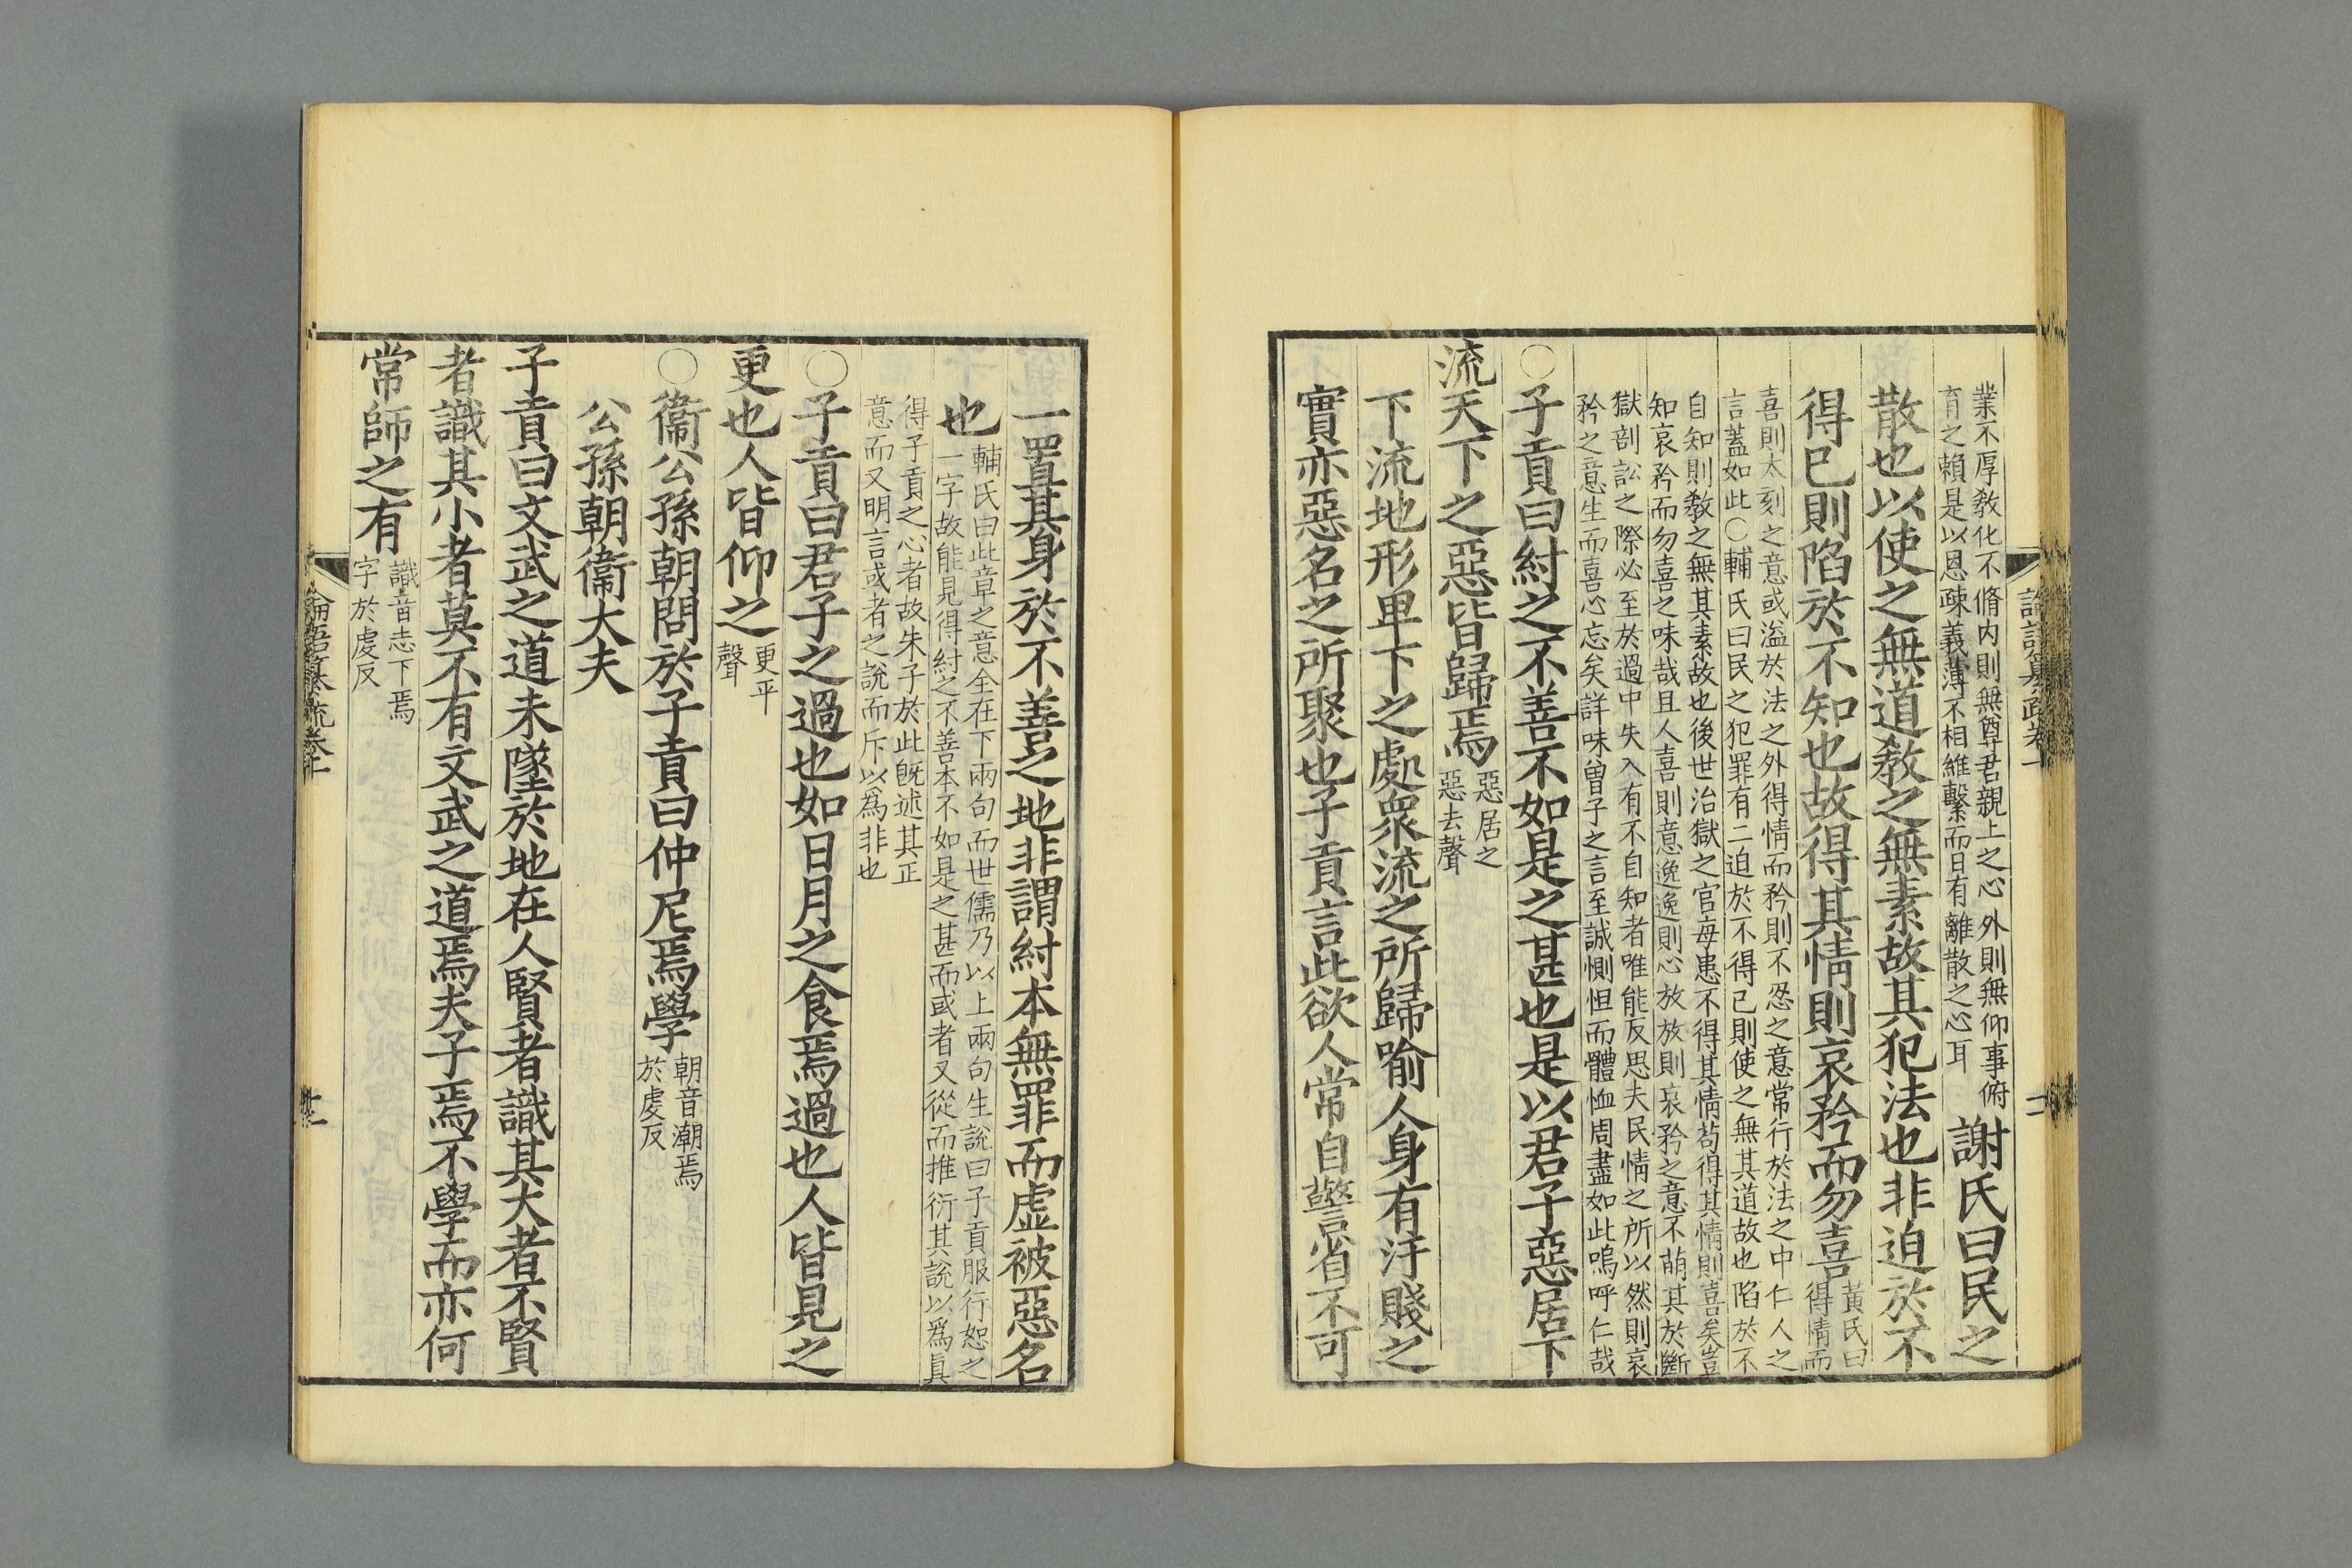 業不厚教化不脩内則無尊君親上之心外則無仰事俯
育之賴是以恩疎義薄不相維繫而日有離散之心耳
謝氏曰民之
散也以使之無道教之無素故其犯法也非迫於不
得已則陷於不知也故得其情則哀矜而勿喜
黃氏曰
得情而
喜則太刻之意或溢於法之外得情而矜則不忍之意常行於法之中仁人之
言蓋如此○輔氏曰民之犯罪有二迫於不得已則使之無其道故也陷於不
自知則教之無其素故也後世治獄之官毎患不得其情苟得其情則喜矣豈
知哀矜而勿喜之味哉且人喜則意逸逸則心放放則哀矜之意不萠其於斷
獄剖訟之際必至於過中失入有不自知者唯能反思夫民情之所以然則哀
矜之意生而喜心忘矣詳味曾子之言至誠惻怛而體恤周盡如此嗚呼仁哉
○子貢曰紂之不善不如是之甚也是以君子惡居下
流天下之惡皆歸焉
惡居之
惡去聲
下流地形卑下之處衆流之所歸喻人身有汙賤之
實亦惡名之所聚也子貢言此欲人常自警省不可
一置其身於不善之地非謂紂本無罪而虚被惡名
也
輔氏曰此章之意全在下兩句而世儒乃以上兩句生說曰子貢服行恕之
一字故能見得紂之不善本不如是之甚而或者又從而推衍其說以爲眞
得子貢之心者故朱子於此旣述其正
意而又明言或者之說而斥以爲非也
○子貢曰君子之過也如日月之食焉過也人皆見之
更也人皆仰之
更平
聲
○衞公孫朝問於子貢曰仲尼焉學
朝音潮焉
於虔反
公孫朝衞大夫
子貢曰文武之道未墜於地在人賢者識其大者不賢
者識其小者莫不有文武之道焉夫子焉不學而亦何
常師之有
識音志下焉
字於虔反